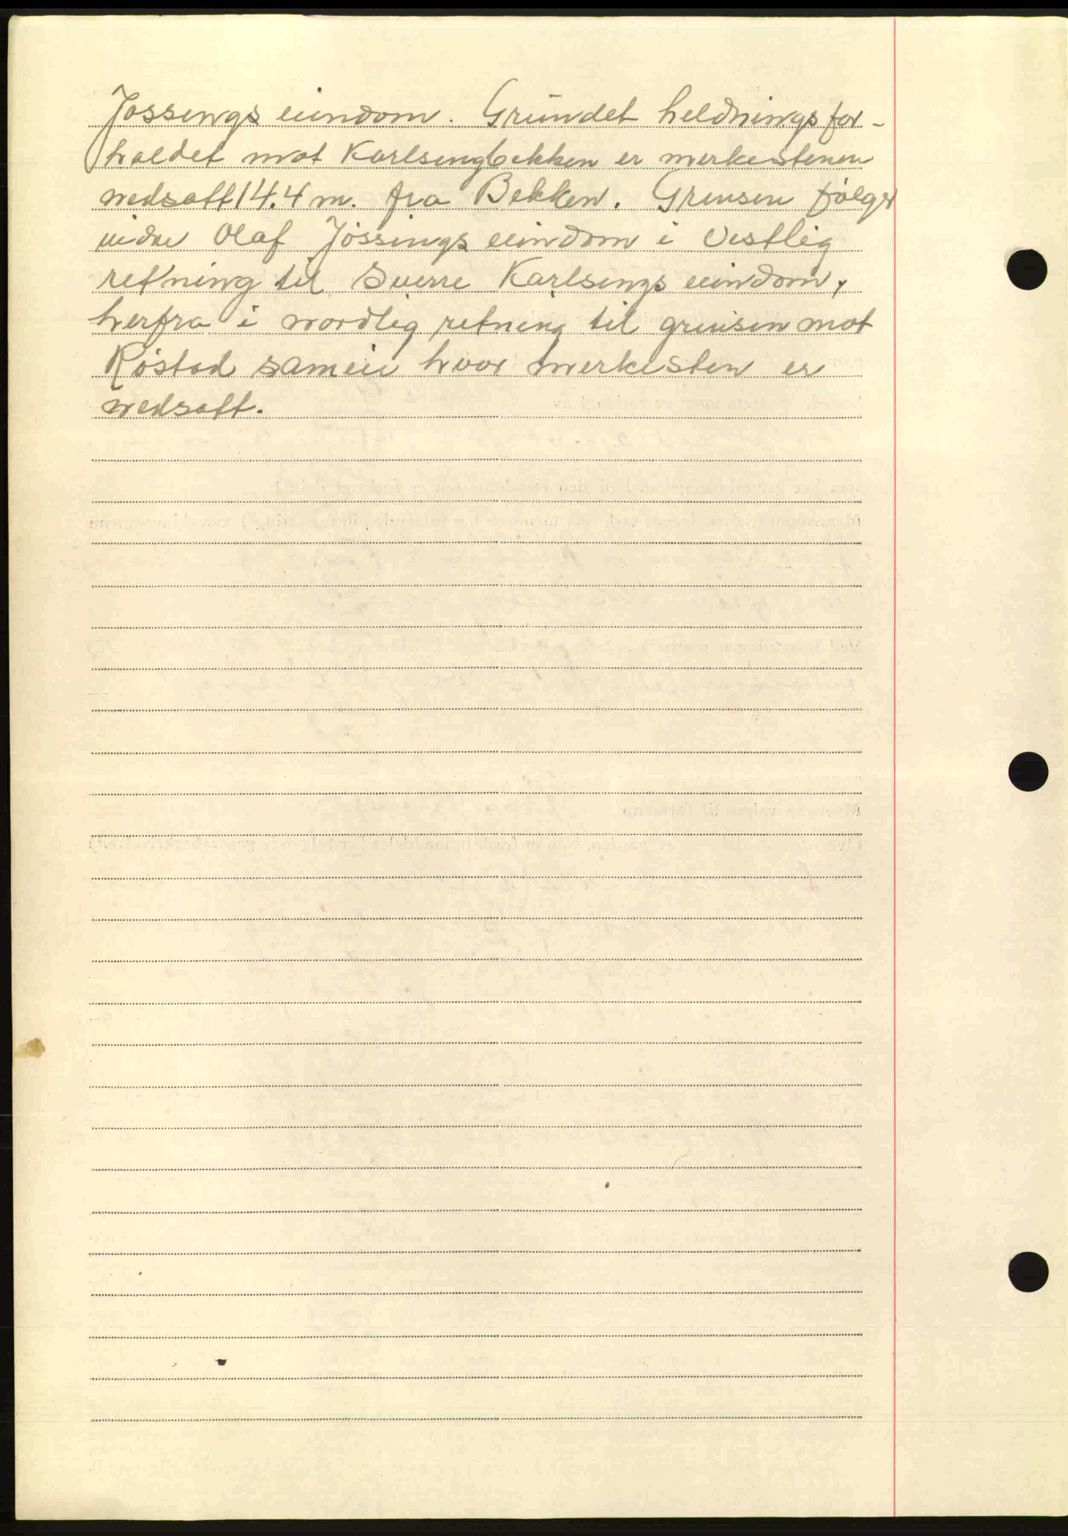 Jøssings eiendom. Grundet heldningsfor-
holdet mot Karlsengbekken er merkestenen
nedsatt 14.4 m. fra Bekken. Grensen følger
videre Olaf Jøssings eiendom i Vestlig
retning til Sverre Karlsengs eiendom,
herfra i nordlig retning til grensen mot
Røstad sameie hvor merkesten er
nedsatt.